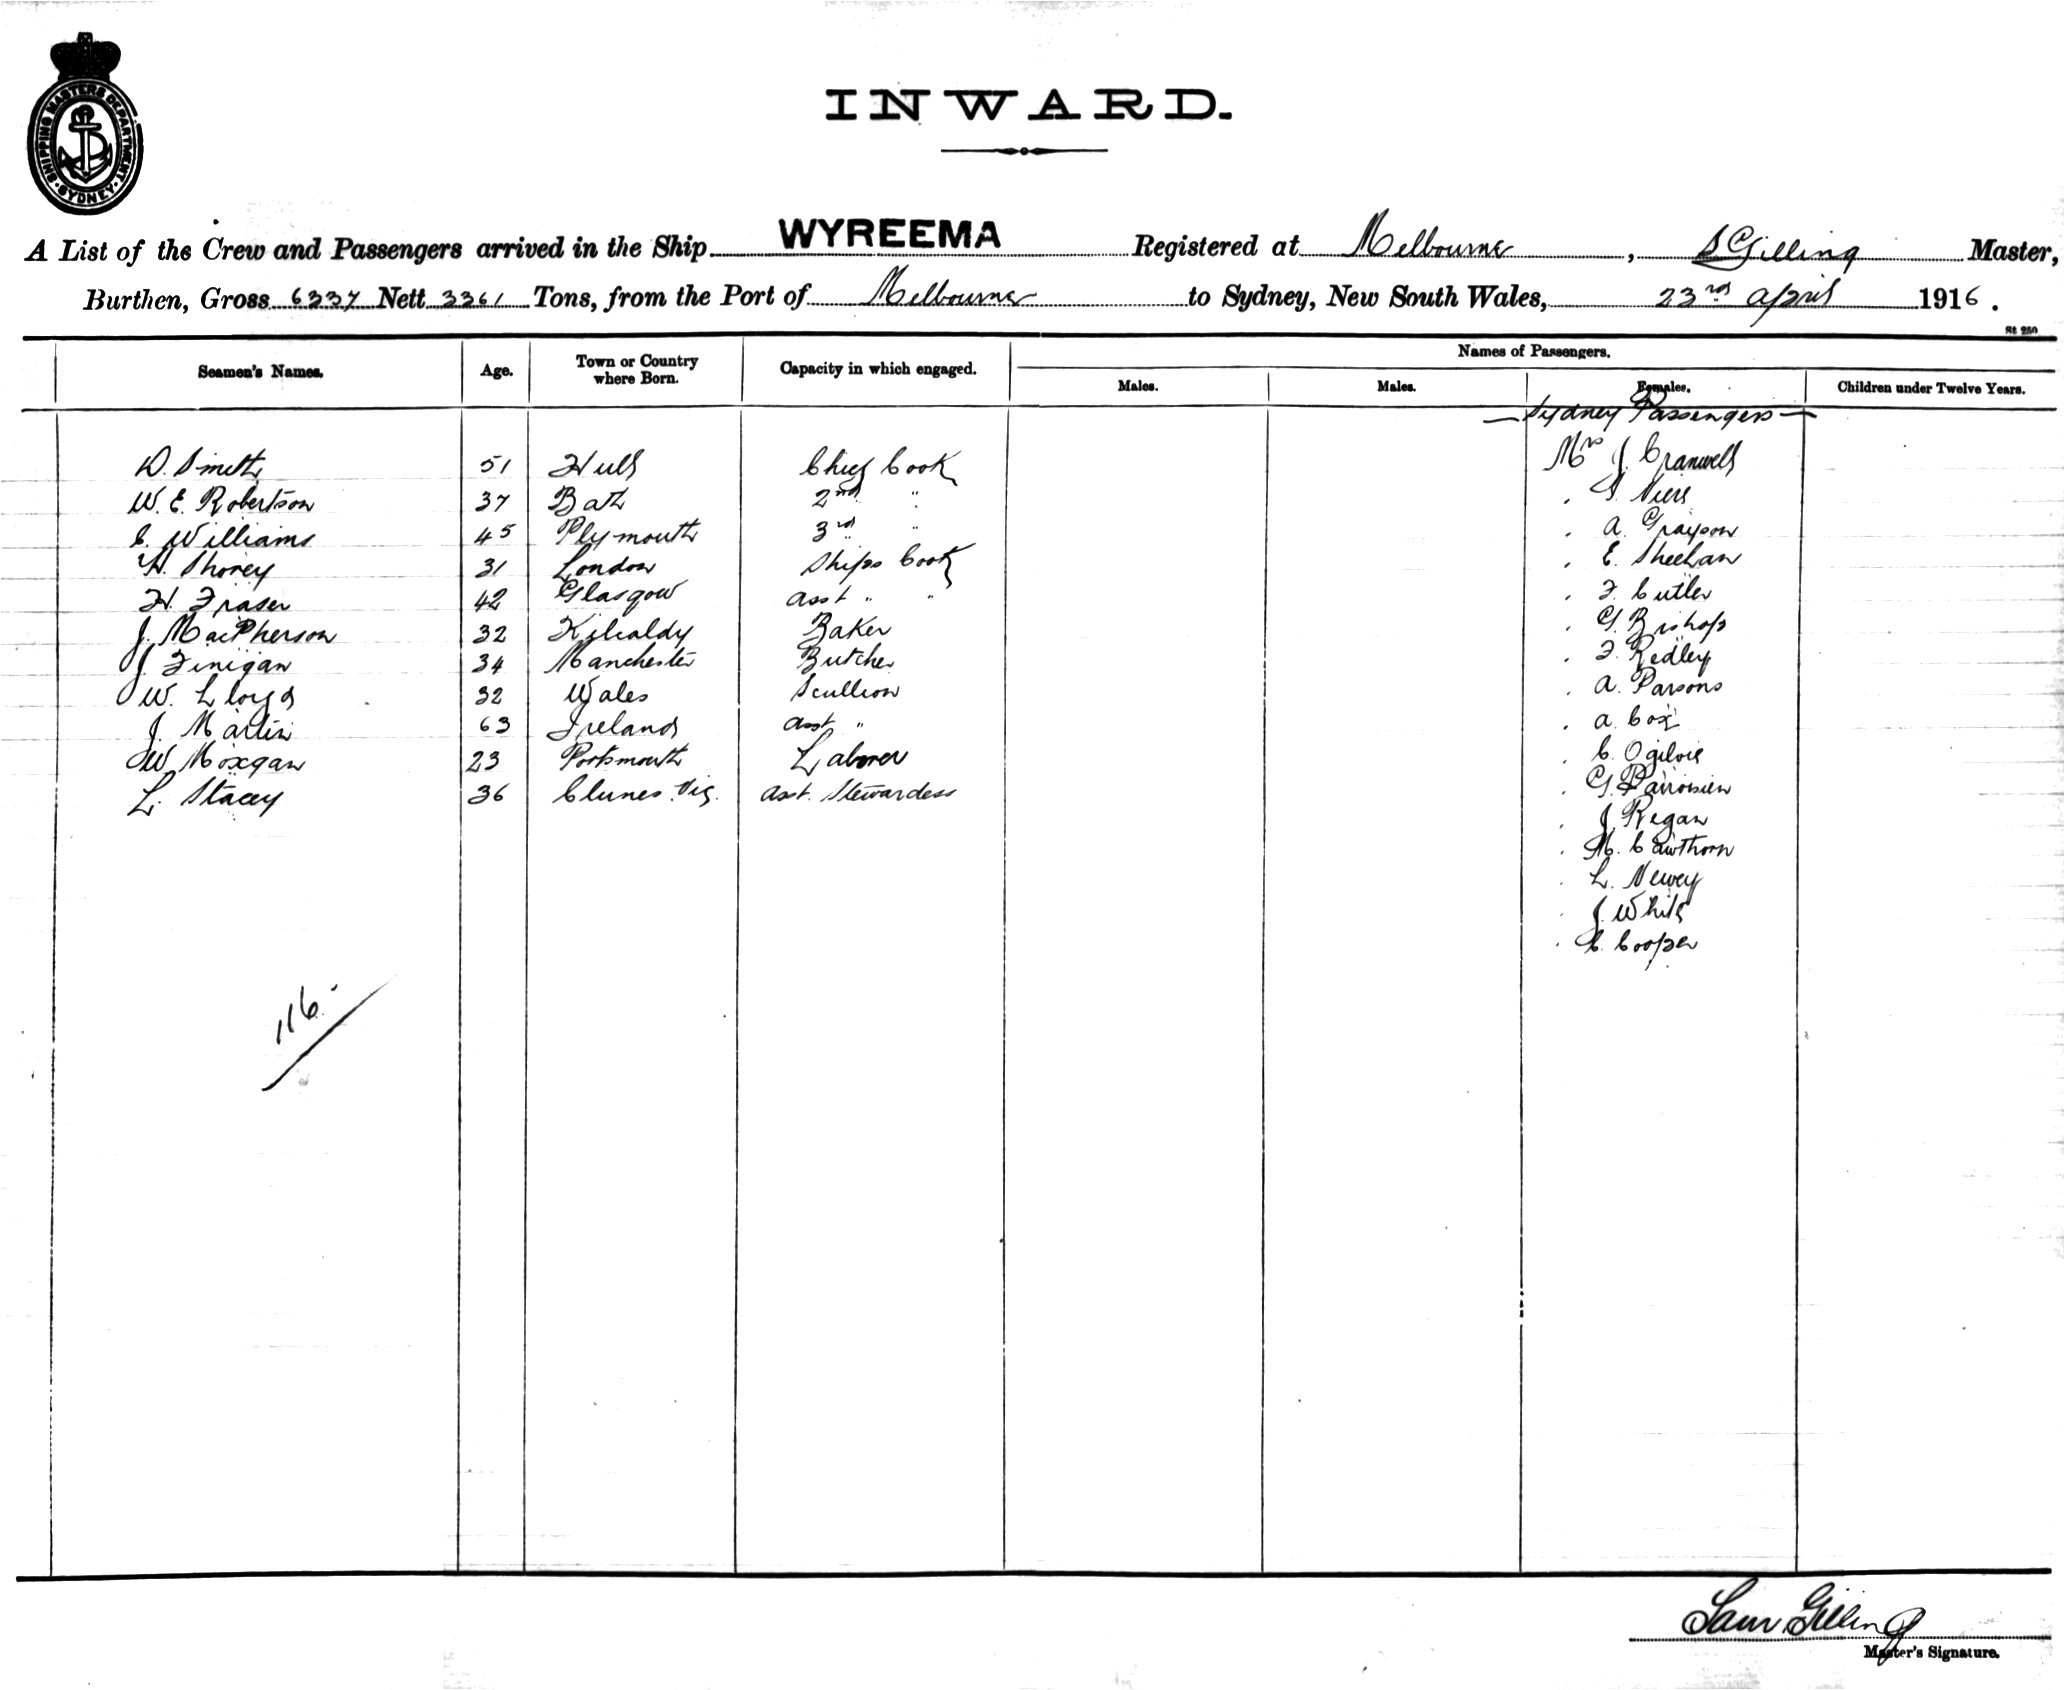 SHIPPING MASTERS DEPARTMENT. SYDNEY
INWARD.
A List of the Crew and Passengers arrived in the Ship WYREEMA Registered at Melbourne, S Gilling Master,
Burthen, Gross 6337 Nett 3361 Tons, from the Port of Melbourne to Sydney, New South Wales, 23rd April 1916.
St 250
Seamen's Names. Age. Town or Country where Born. Capacity in which engaged. Names of Passengers.
Males. Males. Females. Children under Twelve Years.
Sydney Passengers
D. Smith 51 Hull Chief Cook Mrs J. Cranwell
W. E. Robertson 37 Bath 2nd " .
C. Williams 45 Plymouth 3rd " . A. Grayson
H. Shorey 31 London Ships Cook . E. Sheehan
H. Fraser 42 Glasgow Asst " " . F. Cutler
J. MacPherson 32 Baker . G. Bishop
J. Finigan 34 Manchester Butcher . F. Redley
W. Lloyd 32 Wales Scullion . A. Parsons
J. Martin 63 Ireland Asst " . A. Cox
W. Moxgan 23 Portsmouth Laborer . C. Ogilvie
L. Stacey 36 Clunes Vic. Asst. Stewardess . G. Parroisien
. J. Regan
. M. Cawthorn
. L. Newey
. J. White
. C. Cooper
116.
Sam Gilling
Master's Signature.